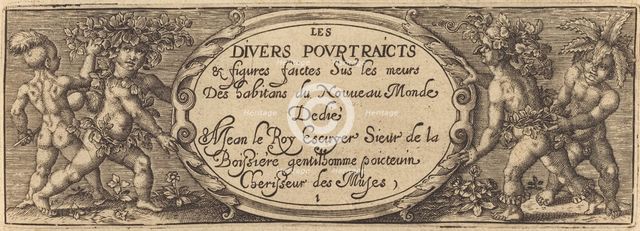 LES
DIVERS POVRTRAICTS
& figures faictes Sus les meurs
Des habitans du Nouveau Monde
Dedié
A Jean le Roy Escuyer Sieur de la
Boissiere gentilhomme poictevin
Cherisseur des Muses
1